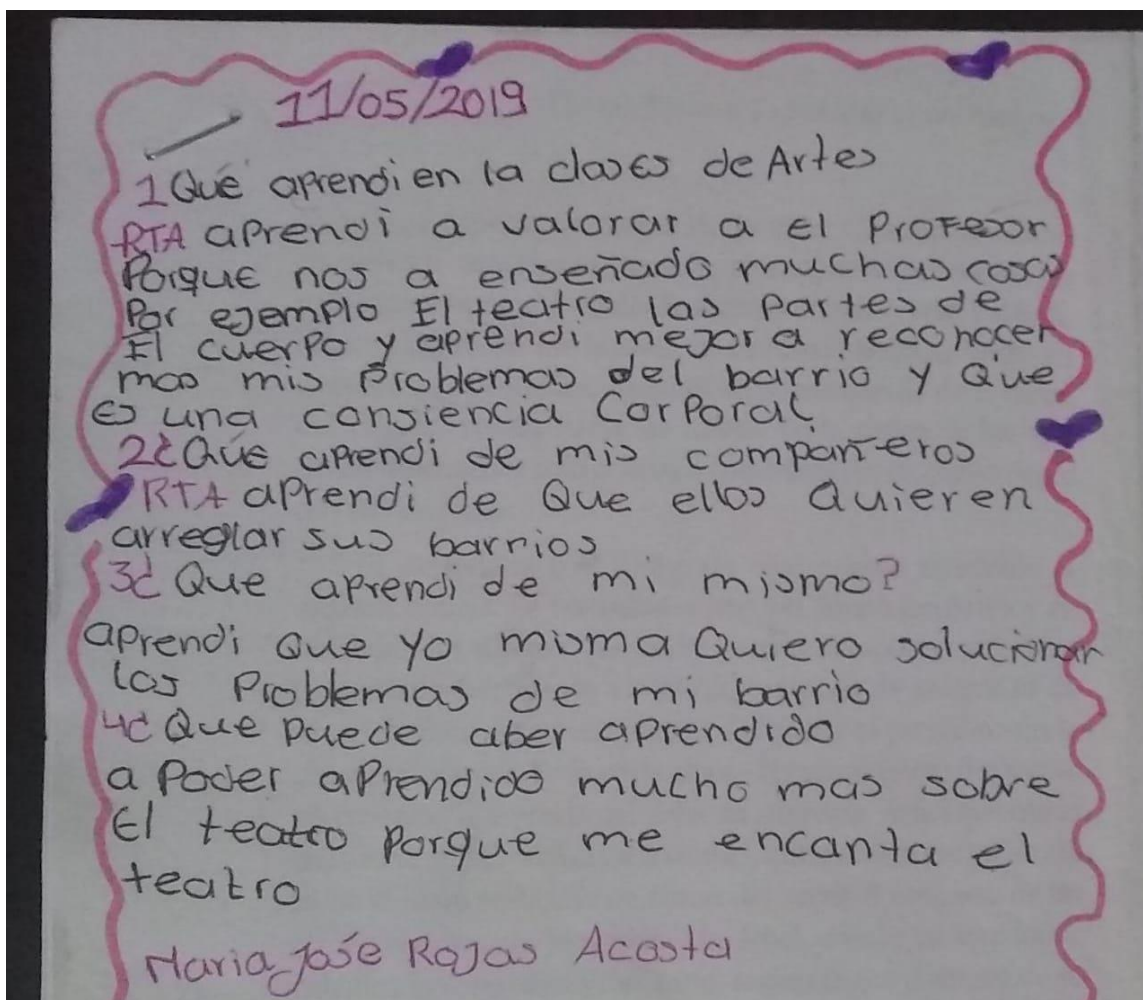 11/05/2019
1 Qué aprendi en la clases de Artes
RTA aprendi a valorar a El Profesor
Porque nos a enseñado muchas cosas
Por ejemplo El teatro las partes de
El cuerpo y aprendi mejor a reconocer
mas mis Problemas del barrio y Que
es una consiencia Corporal.
2¿Que aprendi de mis compañeros
RTA aprendi de Que ellos Quieren
arreglar sus barrios
3¿Que aprendi de mi mismo?
aprendi que yo misma Quiero solucionar
los Problemas de mi barrio
4¿Que puede aber aprendido
a Poder aprendido mucho mas sobre
El teatro Porque me encanta el
teatro
Maria José Rojas Acosta